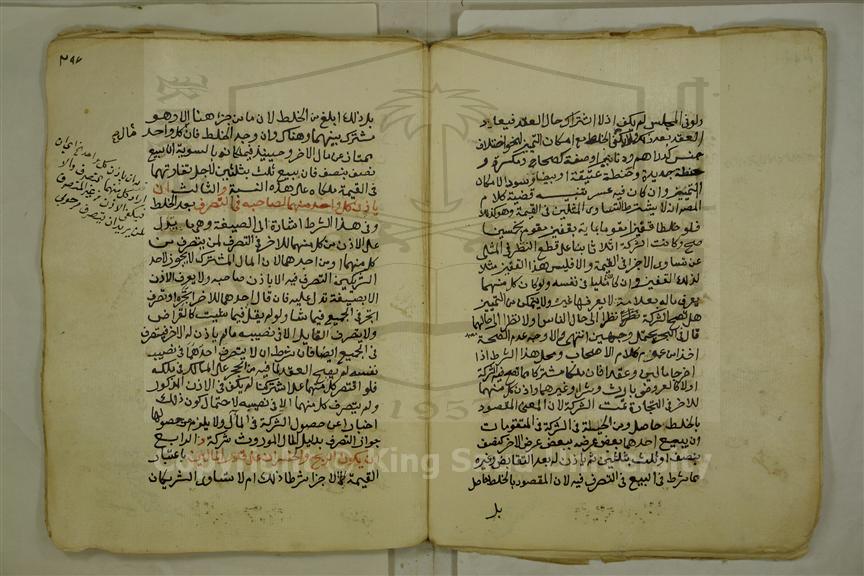 ولو في المجلس لم يكف اذ لا اشتراك حال العقد فيعاد
العقد بعد ذلك ولا يكفي الخلط مع امكان التمييز لنحو اختلاف
جنس كدراهم ودنانير او صفة كصحاح ومكسرة و
حنطة جديدة وحنطة عتيقة او بيضا وسودا لامكان
التمييز وان كان فيه عسر تنبيه قضية كلام
المصنف ان لا يشترط التساوي المثلين في القيمة وهو كذلك
فلو خلطا قفيزا بمائة بقفيز مقوم بخمسين
صح وكانت الشركة اثلاثا بناء على قطع النظر في المثلي
عن تساوي الاجزا في القيمة والا فليس هذا القفيز مثلا
لذلك القفيز وان كان مثليا في نفسه ولو كان كل منهما
يعرف ماله بعلامة لا يعرفها غيره ولا يتمكن من التمييز
هل تصح الشركة نظرا الى حال الناس اولا نظرا الى حالهما
قال في البحر يحتمل وجهين انتهى والاوجه عدم الصحة
اخذا من عموم كلام الاصحاب ومحل هذا الشرط اذا
اخرجا مالين وعقدا فان ملكا مشتركا مما تصح فيه الشركة
اولا كالعروض بارث وشرا وغيرهما واذن كل منهما
للاخر في التجارة تمت الشركة لان المعنى المقصود
بالخلط حاصل ومن الحيلة في الشركة في المتقومات
ان يبيع احدهما بعض عرضه ببعض عرض الاخر كنصف
بنصف او ثلث بثلثين ثم ياذن له بعد التقابض وغيره
مما شرط في البيع في التصرف فيه لان المقصود بالخلط حاصل
بل
٣٩٤
بل ذلك ابلغ من الخلط لان ما من جزء هنا الا وهو
مشترك بينهما وهناك وان وجد الخلط فان كل واحد
يمتاز عن مال الاخر وحينئذ فيملكانه بالسوية ان بيع
نصف بنصف فان بيع ثلث بثلثين لاجل تفاوتهما
في القيمة ملكاه على هذه النسبة والثالث ان
ياذن كل واحد منهما لصاحبه في التصرف بعد الخلط
وفي هذا الشرط اشارة الى الصيغة وهي ما يدل
على الاذن من كل منهما للاخر في التصرف لمن يتصرف من
كل منهما او من احدهما لان المال المشترك لا يجوز لاحد
الشريكين التصرف فيه الا باذن صاحبه ولا يعرف الاذن
الا بصيغة تدل عليه فان قال احدهما للاخر اتجر او تصرف
اتجر في الجميع فيما شاء ولو لم يقل فيما شئت كالقراض
ولا يتصرف القايل الا في نصيبه مالم ياذن له الاخر فيتصرف
في الجميع ايضا فان شرط ان لا يتصرف احدهما في نصيب
نفسه لم يصح العقد لما فيه من الحجر على المالك في ملكه
فلو اقتصر كل منهما على اشتركنا لم يكف في الاذن المذكور
ولم يتصرف كل منهما الا في نصيبه لاحتمال كون ذلك
اخبارا عن حصول الشركة في المال ولا يلزم من حصولها
جواز التصرف بدليل المال الموروث شركة والرابع
ان يكون الربح والخسران على قدر المالين باعتبار
القيمة لا الاجزا شرطا ذلك ام لا تساوى الشريكان